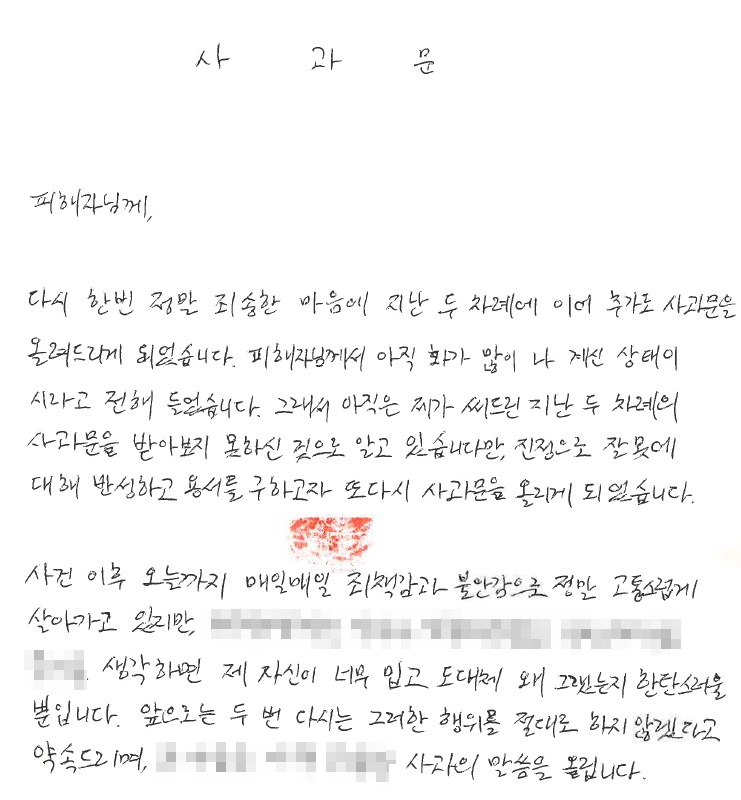 사 과 문
피해자님께,
다시 한번 정말 죄송한 마음에 지난 두 차례에 이어 추가로 사과문을
올려드리게 되었습니다. 피해자님께서 아직 화가 많이 나 계신 상태이
시라고 전해 들었습니다. 그래서 아직은 제가 써드린 지난 두 차례의
사과문을 받아보지 못하신 것으로 알고 있습니다만, 진정으로 잘못에
대해 반성하고 용서를 구하고자 또다시 사과문을 올리게 되었습니다.
사건 이후 오늘까지 매일매일 죄책감과 불안감으로 정말 고통스럽게
살아가고 있지만,
생각하면 제 자신이 너무 밉고 도대체 왜 그랬는지 한탄스러울
뿐입니다. 앞으로는 두 번 다시는 그러한 행위를 절대로 하지 않겠다고
약속드리며, 사과의 말씀을 올립니다.